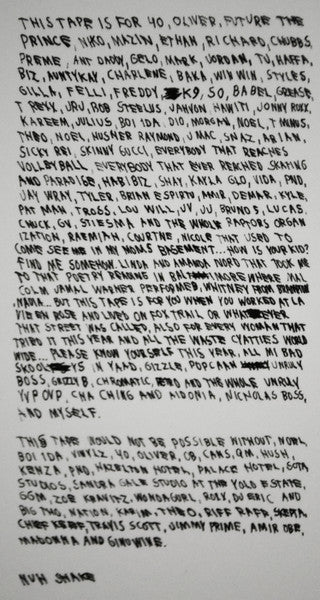 THIS TAPE IS FOR 40, OLIVER, FUTURE THE
PRINCE, NIKO, MAZIN, ETHAN, RICHARD, CHUBBS,
PREME, ANT DADDY, GELO, MARK, JORDAN, TJ, HAFFA,
BIZ, AUNTYKAY, CHARLENE, BAKA, WIN WIN, STYLES,
GILLA, FELLI, FREDDY, K9, SO, BABEL, GREASE,
T REXX, JRU, ROB STERLUS, JAHVON HAWITI, JONNY ROXX,
KAREEM, JULIUS, BOI IDA, DIO, MORGAN, NOEL, T MINUS,
THEO, NOEL, HUSHER RAYMOND, J MAC, SNAZ, ARIAN,
SICKY REI, SKINNY GUCCI, EVERYBODY THAT REACHES
VOLLEYBALL, EVERYBODY THAT EVER REACHED SKATING
AND PARADISE, HABIBIZ, SHAY, KAYLA GLO, VIDA, PND,
JAY WRAY, TYLER, BRIAN ESPIRTU, AMIR, DEMAR, KYLE,
PAT MAN, TROSS, LOU WILL, JV, JU, BRUNOS, LUCAS,
CHUCK, GV, STIESMA AND THE WHOLE RAPTORS ORGAN
IZATION, RAEMIAH, COURTNE, NICOLE THAT USED TO
COME SEE ME IN MY MOMS BASEMENT... HOW IS YOUR KID?
FIND ME SOMEHOW, LINDA AND AMANDA WORD THAT TOOK ME
TO THAT POETRY READING IN BALTIMORE WHERE MAL
COLM JAMAL WARNER PERFORMED, WHITNEY FROM
NADIA... BUT THIS TAPE IS FOR YOU WHEN YOU WORKED AT LA
VIE EN ROSE AND LIVED ON FOX TRAIL OR WHATEVER
THAT STREET WAS CALLED, ALSO FOR EVERY WOMAN THAT
TRIED IT THIS YEAR AND ALL THE WASTE CYATTIES WORLD
WIDE... PLEASE KNOW YOURSELF THIS YEAR. ALL MI BAD
IN YAAD, GIZZLE, POPCAAN UNRULY
BOSS, GRIZZY B, CHROMATIC, AND THE WHOLE UNRULY
YVP OVP, CHA CHING AND AIDONIA, NICHOLAS BOSS,
AND MYSELF.
THIS TAPE WOULD NOT BE POSSIBLE WITHOUT, NOEL,
BOI IDA, VINYLZ, 40, OLIVER, CB, CAKS, QM, HUSH,
KENZA, PND, HAZELTON HOTEL, PALACE HOTEL, SOTA
STUDIOS, SANDRA GALE STUDIO AT THE YOLO ESTATE,
GGM, ZOE KRAVITZ, WONDAGURL, ROXX, DU ERIC AND
BIG THO, NATION, KARIM, THEO, RIFF RAFF, SKEPTA,
CHIEF KEEF, TRAVIS SCOTT, JIMMY PRIME, AMIR OBE,
MADONNA AND GINUWINE.
NUH SHAKE